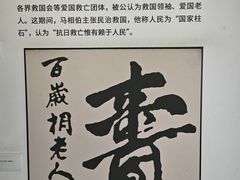 各界救国会等爱国救亡团体，被公认为救国领袖、爱国老
人。这期间，马相伯主张民治救国，他称人民为“国家柱
石”，认为“抗日救亡惟有赖于人民”。
百岁相老人
壽